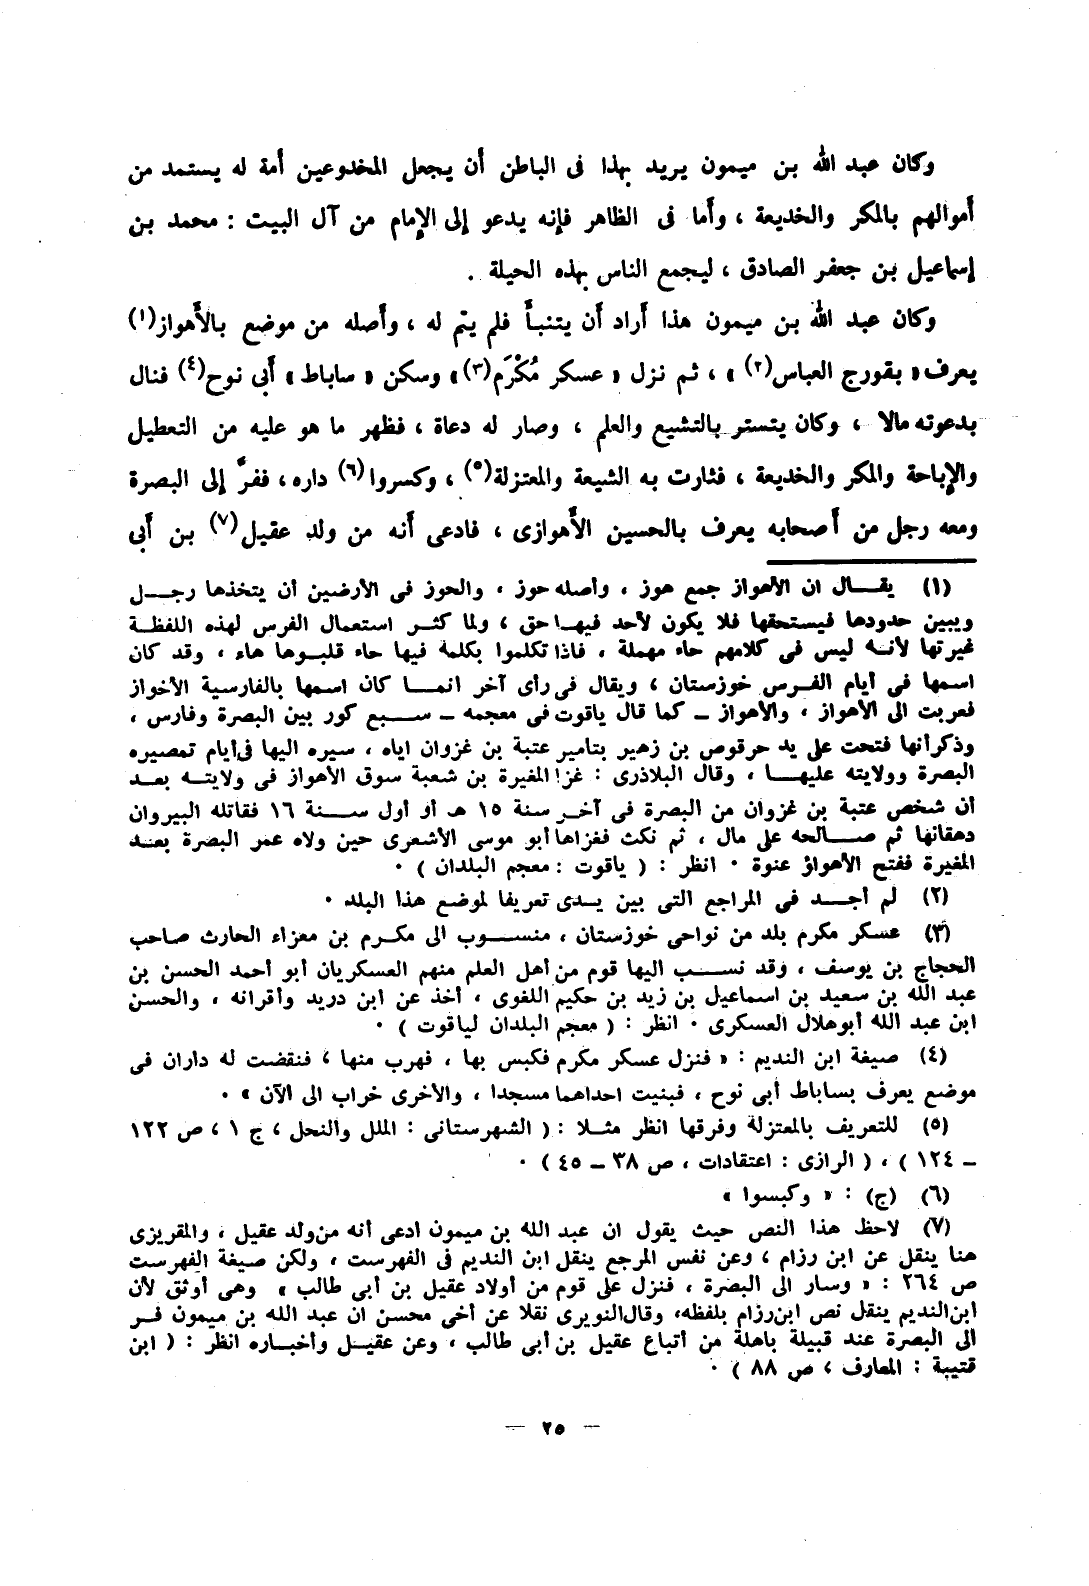 وكان عبد الله بن ميمون يريد بهذا فى الباطن أن يجعل المخدوعين أمة له يستمد من
أموالهم بالمكر والخديعة ، وأما فى الظاهر فإنه يدعو إلى الإمام من آل البيت : محمد بن
إسماعيل بن جعفر الصادق ، ليجمع الناس بهذه الحيلة .
وكان عبد الله بن ميمون هذا أراد أن يتنبأ فلم يتم له ، وأصله من موضع بالأهواز(١)
يعرف « بقورج العباس(٢) » ، ثم نزل « عسكر مُكْرَم(٣)» وسكن « ساباط » أبى نوح(٤) فنال
بدعوته مالا ، وكان يتستر بالتشيع والعلم ، وصار له دعاة ، فظهر ما هو عليه من التعطيل
والإباحة والمكر والخديعة ، فثارت به الشيعة والمعتزلة(٥) ، وكسروا(٦) داره ، ففرَّ إلى البصرة
ومعه رجل من أصحابه يعرف بالحسين الأهوازى ، فادعى أنه من ولد عقيل(٧) بن أبى
(١) يقــال ان الأهواز جمع هوز ، وأصله حوز ، والحوز فى الأرضين أن يتخذها رجــل
ويبين حدودها فيستحقها فلا يكون لأحد فيها حق ، ولما كثر استعمال الفرس لهذه اللفظة
غيرتها لأنه ليس فى كلامهم حاء مهملة ، فاذا تكلموا بكلمة فيها حاء قلبوها هاء ، وقد كان
اسمها فى أيام الفرس خوزستان ، ويقال فى رأى آخر انمــا كان اسمها بالفارسية الأخواز
فعربت الى الأهواز ، والأهواز – كما قال ياقوت فى معجمه – سبع كور بين البصرة وفارس ،
وذكر أنها فتحت على يد حرقوص بن زهير بتامير عتبة بن غزوان اياه ، سيره اليها فى أيام تمصيره
البصرة وولايته عليهــا ، وقال البلاذرى : غزا المغيرة بن شعبة سوق الأهواز فى ولايته بعد
أن شخص عتبة بن غزوان من البصرة فى آخر سنة ١٥ هـ أو أول سنة ١٦ فقاتله البيروان
دهقانها ثم صــالحه على مال ، ثم نكث فغزاها أبو موسى الأشعرى حين ولاه عمر البصرة بعد
المغيرة ففتح الأهواز عنوة ٠ انظر : ( ياقوت : معجم البلدان ) ٠
(٢) لم أجــد فى المراجع التى بين يــدى تعريفا لموضع هذا البلد ٠
(٣) عسكر مكرم بلد من نواحى خوزستان ، منسوب الى مكرم بن معزاء الحارث صاحب
الحجاج بن يوسف ، وقد نسب اليها قوم من أهل العلم منهم العسكريان أبو أحمد الحسن بن
عبد الله بن سعيد بن اسماعيل بن زيد بن حكيم اللغوى ، أخذ عن ابن دريد وأقرانه ، والحسن
ابن عبد الله أبو هلال العسكرى ٠ انظر : ( معجم البلدان لياقوت ) ٠
(٤) صيغة ابن النديم : « فنزل عسكر مكرم فكبس بها ، فهرب منها ، فنقضت له داران فى
موضع يعرف بساباط أبى نوح ، فبنيت احداهما مسجدا ، والأخرى خراب الى الآن » ٠
(٥) للتعريف بالمعتزلة وفرقها انظر مثــلا : ( الشهرستانى : الملل والنحل ، ج ١ ، ص ١٢٢
– ١٢٤ ) ، ( الرازى : اعتقادات ، ص ٣٨ – ٤٥ ) ٠
(٦) (ج) : « وكبسوا »
(٧) لاحظ هذا النص حيث يقول ان عبد الله بن ميمون ادعى أنه من ولد عقيل ، والمقريزى
هنا ينقل عن ابن رزام ، وعن نفس المرجع ينقل ابن النديم فى الفهرست ، ولكن صيغة الفهرست
ص ٢٦٤ : « وسار الى البصرة ، فنزل على قوم من أولاد عقيل بن أبى طالب » وهى أوثق لأن
ابن النديم ينقل نص ابن رزام بلفظه، وقال النويرى نقلا عن أخى محسن ان عبد الله بن ميمون فــر
الى البصرة عند قبيلة باهلة من أتباع عقيل بن أبى طالب ، وعن عقيــل وأخباره انظر : ( ابن
قتيبة : المعارف ، ص ٨٨ ) ٠
– ٢٥ –